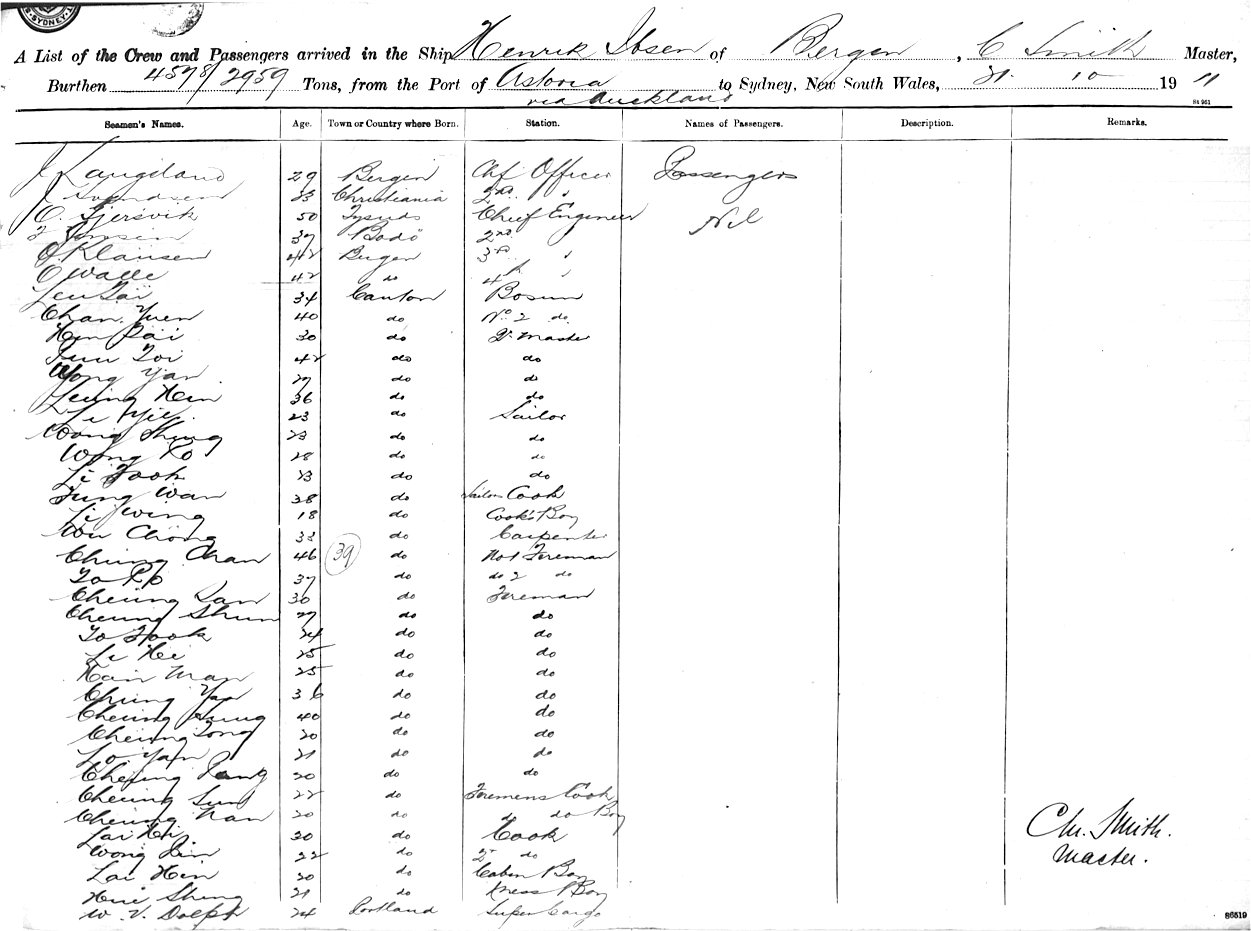 SYDNEY
A List of the Crew and Passengers arrived in the Ship Henrik Ibsen of Bergen, C Smith Master,
Burthen 4578/2959 Tons, from the Port of Astoria to Sydney, New South Wales, 21. 10 1911
via Auckland
St 961
Seamen's Names. Age. Town or Country where Born. Station. Names of Passengers. Description. Remarks.
Langeland 29 Bergen Chf Officer Passengers
33 Christiania 2nd "
O. Gjersvik 50 Chief Engineer Nil
37 Bodö 2nd
O. Klausen 42 Bergen 3rd "
O Walle 42 do 4th "
34 Canton Bosun
Chan Yuen 40 do No 2 do
30 do Qr Master
42 do do
Wong Yan 27 do do
Leung Hein 36 do do
Li 23 do Sailor
Wong Shing 23 do do
Wong Ko 28 do do
Li Fook 23 do do
Fung Wan 38 do Sailors Cook
Li Wing 18 do Cook's Boy
Wu Chong 33 do Carpenter
Cheung Chan 46 39 do No 1 Fireman
To 37 do do 2 do
Cheung 30 do Fireman
Cheung Shun 27 do do
To Fook 24 do do
Li Hei 25 do do
Man 25 do do
Cheung Yau 36 do do
Cheung 40 do do
Cheung Tong 20 do do
Lo Yam 21 do do
Cheung 20 do do
Cheung 22 do Firemens Cook
Cheung Nan 20 do do do Boy
Lai 30 do Cook
Wong 22 do 2d do
Lai Hein 20 do Cabin Boy
Shing 21 do Mess Boy
W. V. Dolph 24 Portland Super Cargo
Ch. Smith.
Master.
86519